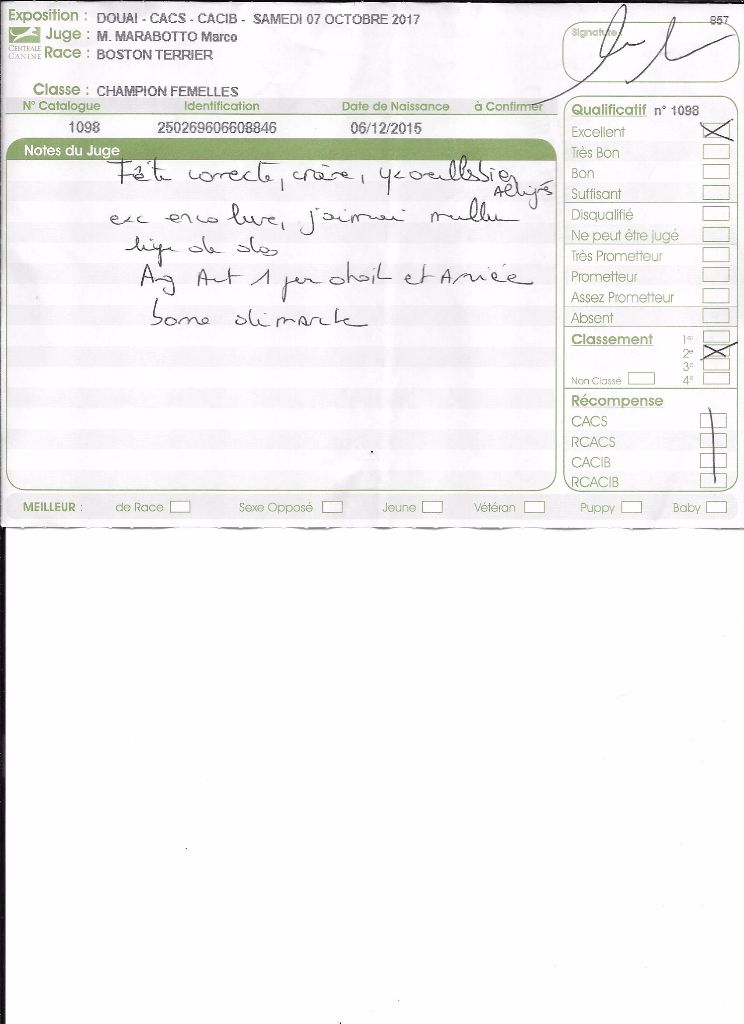 Exposition : DOUAI - CACS - CACIB - SAMEDI 07 OCTOBRE 2017
857
CENTRALE CANINE
Juge : M. MARABOTTO Marco
Race : BOSTON TERRIER
Signature :
Classe : CHAMPION FEMELLES
N° Catalogue Identification Date de Naissance à Confirmer
1098 250269606608846 06/12/2015
Notes du Juge
Tête correcte, crâne, yx oeilles bien
exc encolure, j'aimerai
ligne de dos
Ang Ant 1 peu droit et Arrière
bonne démarche
Qualificatif n° 1098
Excellent
Très Bon
Bon
Suffisant
Disqualifié
Ne peut être jugé
Très Prometteur
Prometteur
Assez Prometteur
Absent
Classement 1er
2e
3e
Non Classé 4e
Récompense
CACS
RCACS
CACIB
RCACIB
MEILLEUR : de Race Sexe Opposé Jeune Vétéran Puppy Baby